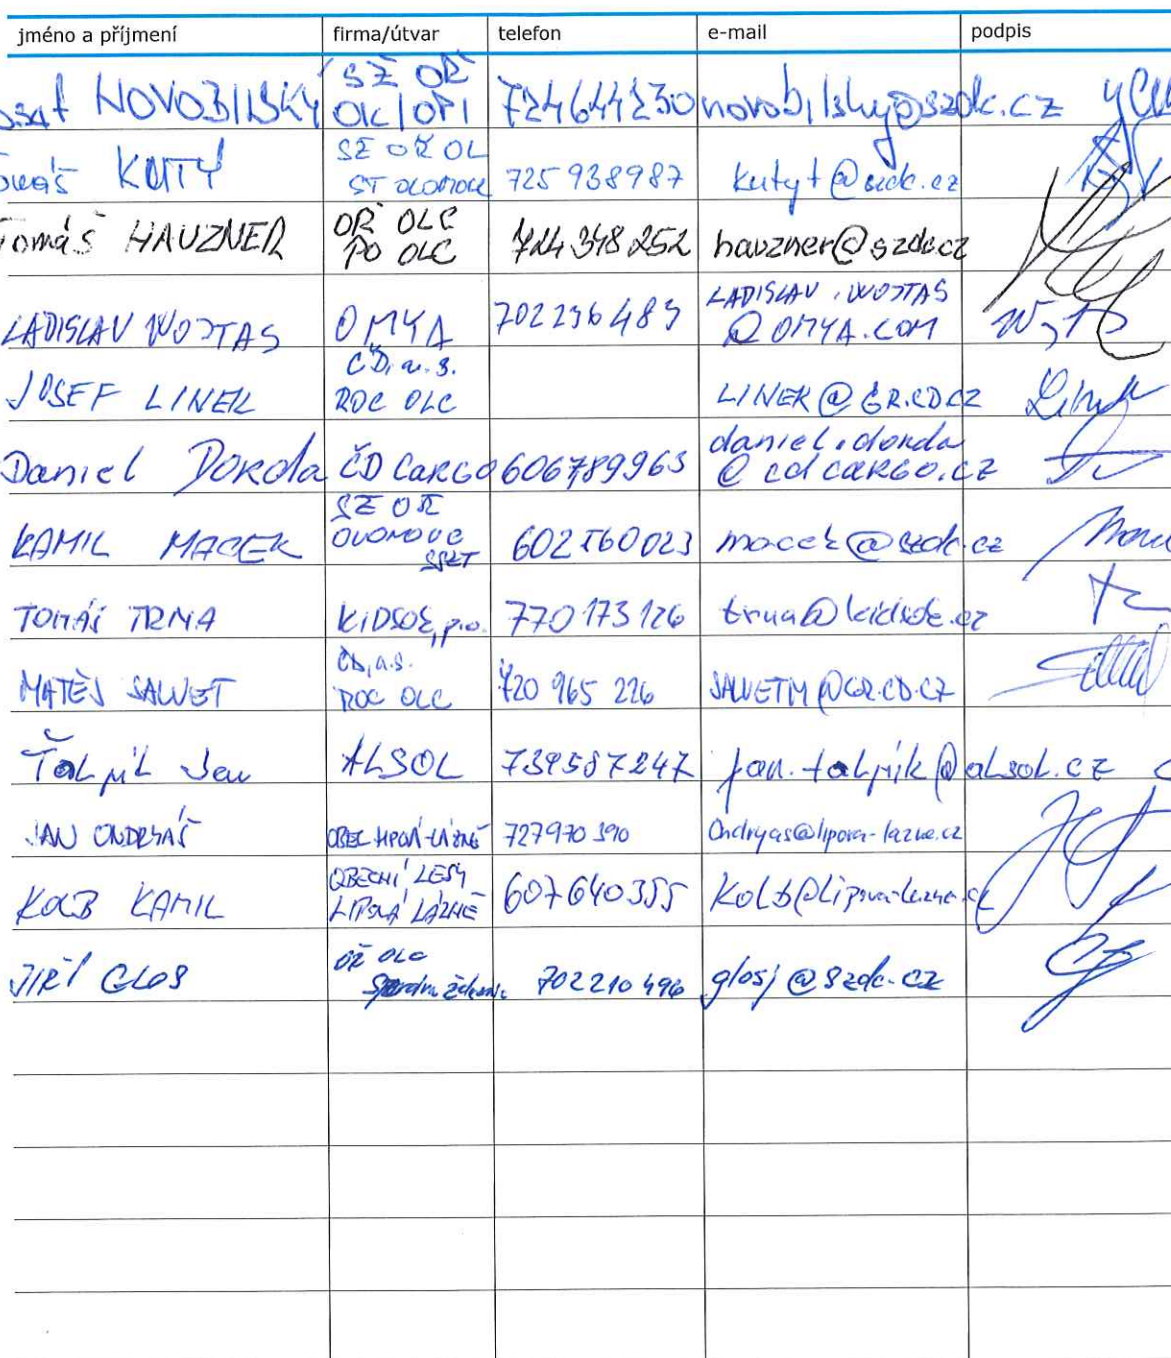 jméno a příjmení firma/útvar telefon e-mail podpis
NOVOBILSKÝ SŽ OŘ OLC/OPI 724644230 novobilsky@szdc.cz
KUTÝ SŽ OŘ OL ST OLOMOUC 725 938987 kutyt@szdc.cz
Tomáš HAUZNER OŘ OLC PO OLC 724 348 252 hauzner@szdc.cz
LADISLAV WOJTAS OMYA LADISLAV.WOJTAS @OMYA.COM
JOSEF LINEK ČD, a.s. ROC OLC LINEK@GR.CD.CZ
Daniel Dorda ČD CARGO 606789963 daniel.dorda @cdcargo.cz
KAMIL MACEK SŽ OŘ OLOMOUC SSZT 602760023 macek@szdc.cz
TOMÁŠ TRNA KIDSOK, p.o. 770 173 126 trna@kidsok.cz
MATĚJ SALVET ČD, a.s. ROC OLC 720 965 226 SALVETM@GR.CD.CZ
Ťalpík Jan ALSOL 739587247 jan.talpik@alsol.cz
JAN ONDRYÁŠ OBEC LIPOVÁ-LÁZNĚ 727970390 Ondryas@lipova-lazne.cz
KOLB KAMIL OBECNÍ LESY LIPOVÁ LÁZNĚ 607640355 Kolb@lipova-lazne.cz
JIŘÍ GLOS OŘ OLC 702210496 glosj@szdc.cz